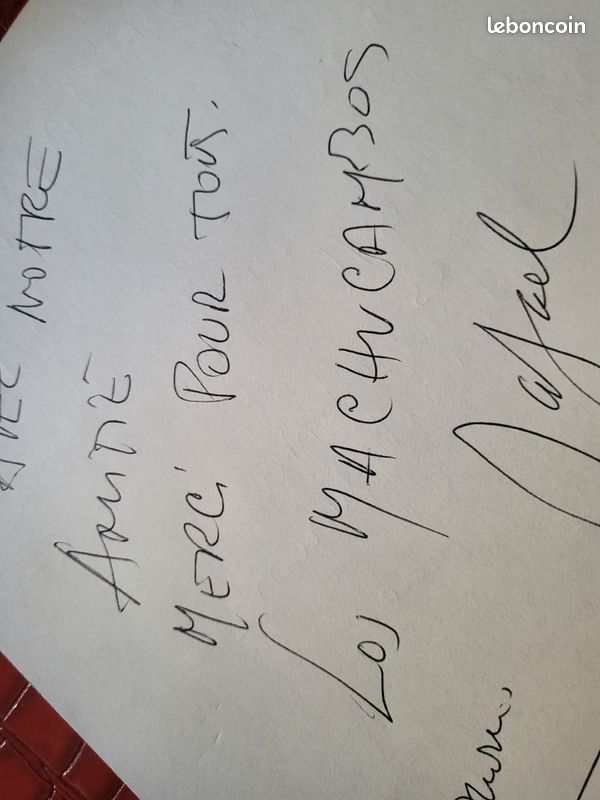 AVEC NOTRE
AMITIÉ
MERCI POUR TOUT.
LOS MACHUCAMBOS
Rafael
leboncoin